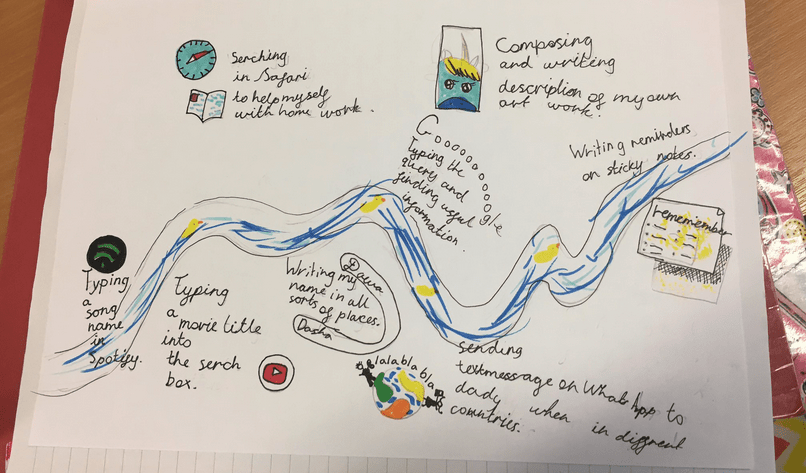 Serching
in Safari
to help myself
with home work.
Composing
and writing
description of my own
art work.
Gooooooooogle
Typing the
query and
finding useful
information.
Writing reminders
on sticky notes.
rememember
Typing
a
song
name
in
Spotify.
Typing
a movie title
into
the serch
box.
Writing my
name in all
sorts of places.
Dasha
lalablabla
Sending
textmessage on WhatsApp to
dady when in different
countries.